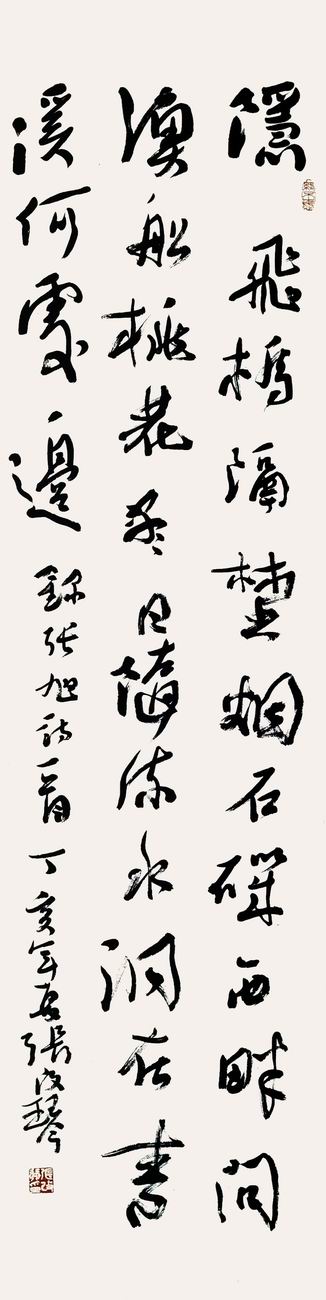 隱飛橋隔埜烟石磯西畔問
漁船桃花尽日隨流水洞在青
溪何處邊 錄張旭詩一首 丁亥年張琴